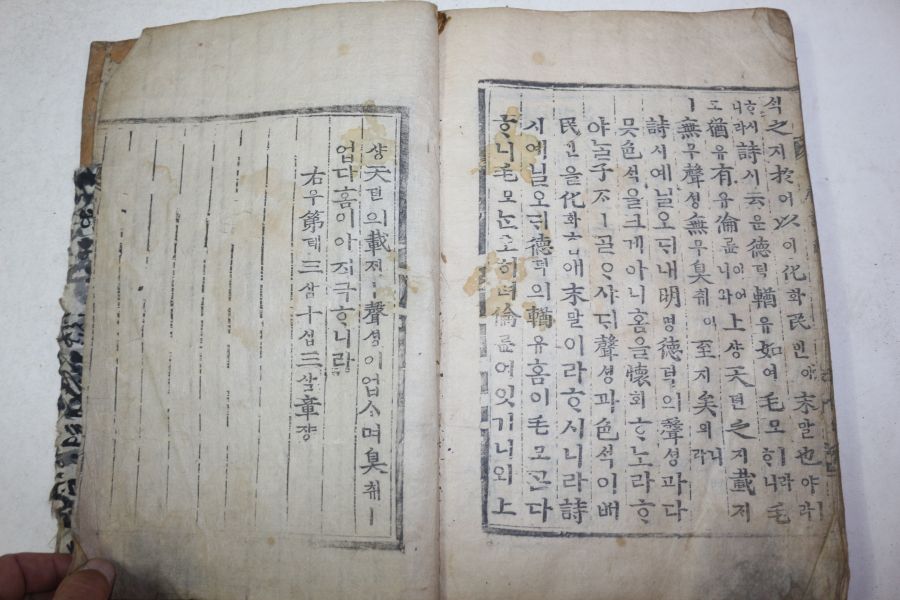 석之지於어以이化화民민애末말也야ㅣ라
ᄒᆞ시니라詩시云운德덕輶유如여毛모ㅣ라ᄒᆞ니毛모
도猶유有유倫륜이어니와上샹天텬之지載ᄌᆡ
ㅣ無무聲셩無무臭취이至지矣의니라
詩시예닐오ᄃᆡ내明명德덕의聲셩과다
ᄆᆺ色석을크게아니홈을懷회ᄒᆞ노라ᄒᆞ
야ᄂᆞᆯ子ᄌᆞㅣᄀᆞᆯᄋᆞ샤ᄃᆡ聲셩과色석이ᄡᅥ
民민을化화홈애末말이라ᄒᆞ시니라詩
시예닐오ᄃᆡ德덕의輶유홈이毛모ᄀᆞᆮ다
ᄒᆞ니毛모ᄂᆞᆫ오히려倫륜이잇거니와上
샹天텬의載ᄌᆡㅣ聲셩이업스며臭취ㅣ
업다홈이아지극ᄒᆞ니라
右우第뎨三삼十십三삼章쟝